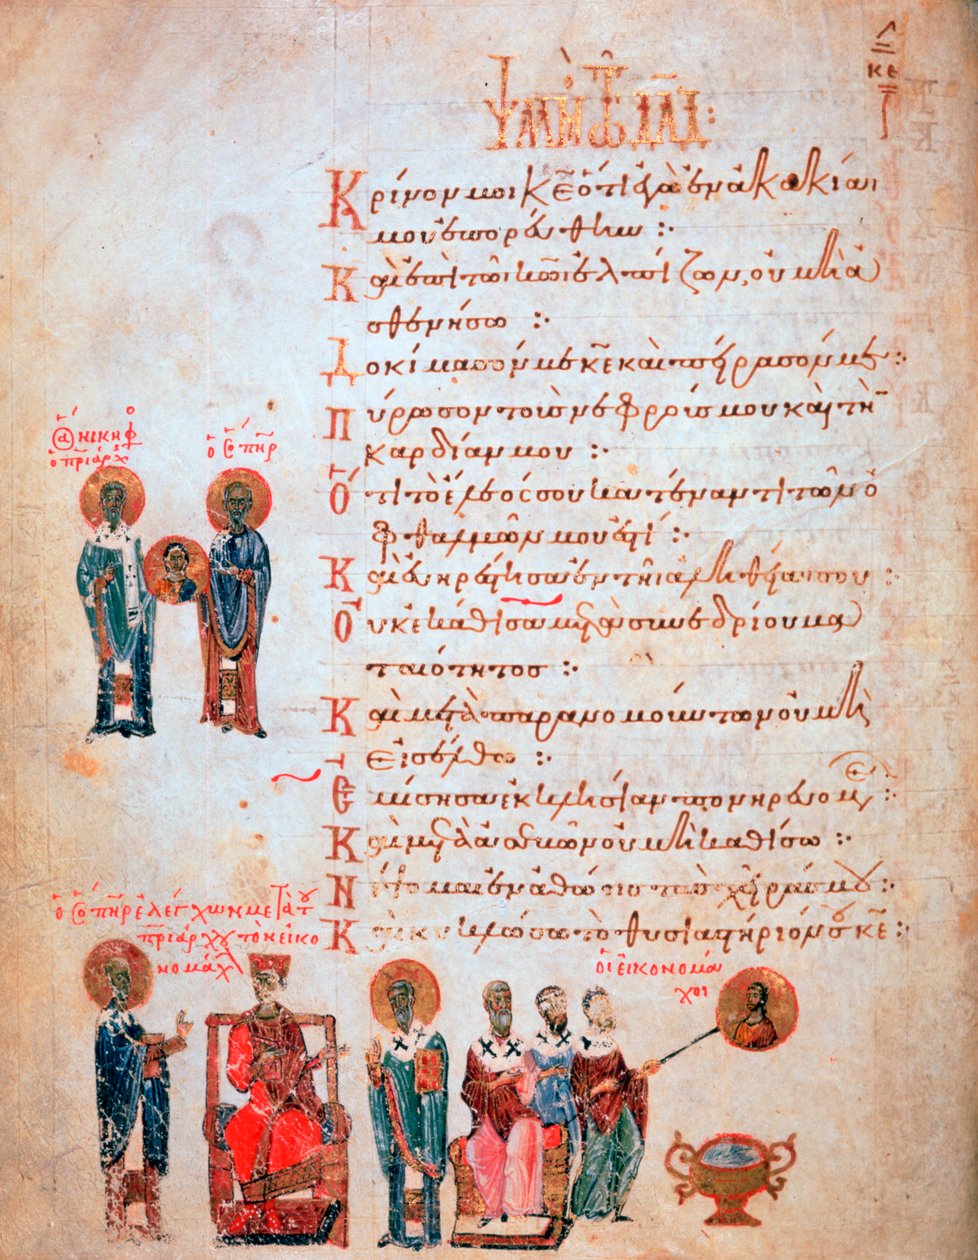 κε
Ψαλμ τῷ Δαδ:
Κρίνον μοι κε ὅτι ἐγὼ ἐν ἀκακίαι
μου ἐπορεύθην :·
Καὶ ἐπὶ τῶι κωι ἐλπίζων, οὐ μὴ ἀ
σθενήσω :·
Δοκίμασόν με κε καὶ πείρασόν με :·
Πύρωσον τοὺς νεφρούς μου καὶ τὴν
καρδίαν μου :·
ὁ ἅ Νικηφ
ὁ πριάρχ
ὁ ὅ πηρ
Ὅτι τὸ ἔλεός σου κατέναντι τῶν ὀ
φθαλμῶν μου ἐστί :·
Καὶ εὐηρέστησα ἐν τῆι ἀληθείαι σου :·
Οὐκ ἐκάθισα μετὰ συνεδρίου μα
ταιότητος :·
Καὶ μετὰ παρανομούντων οὐ μὴ
εἰσέλθω :·
Ἐμίσησα ἐκκλησίαν πονηρευομε :·
Καὶ μετὰ ἀσεβῶν οὐ μὴ καθίσω :·
Νίψομαι ἐν ἀθώοις τὰς χεῖράς μου :·
Καὶ κυκλώσω τὸ θυσιαστήριόν σου κε :·
ὁ ὅ πηρ ἐλέγχων μετὰ τοῦ
πριάρχου τὸν εἰκο
νομάχ
οἱ εἰκονομά
χοι